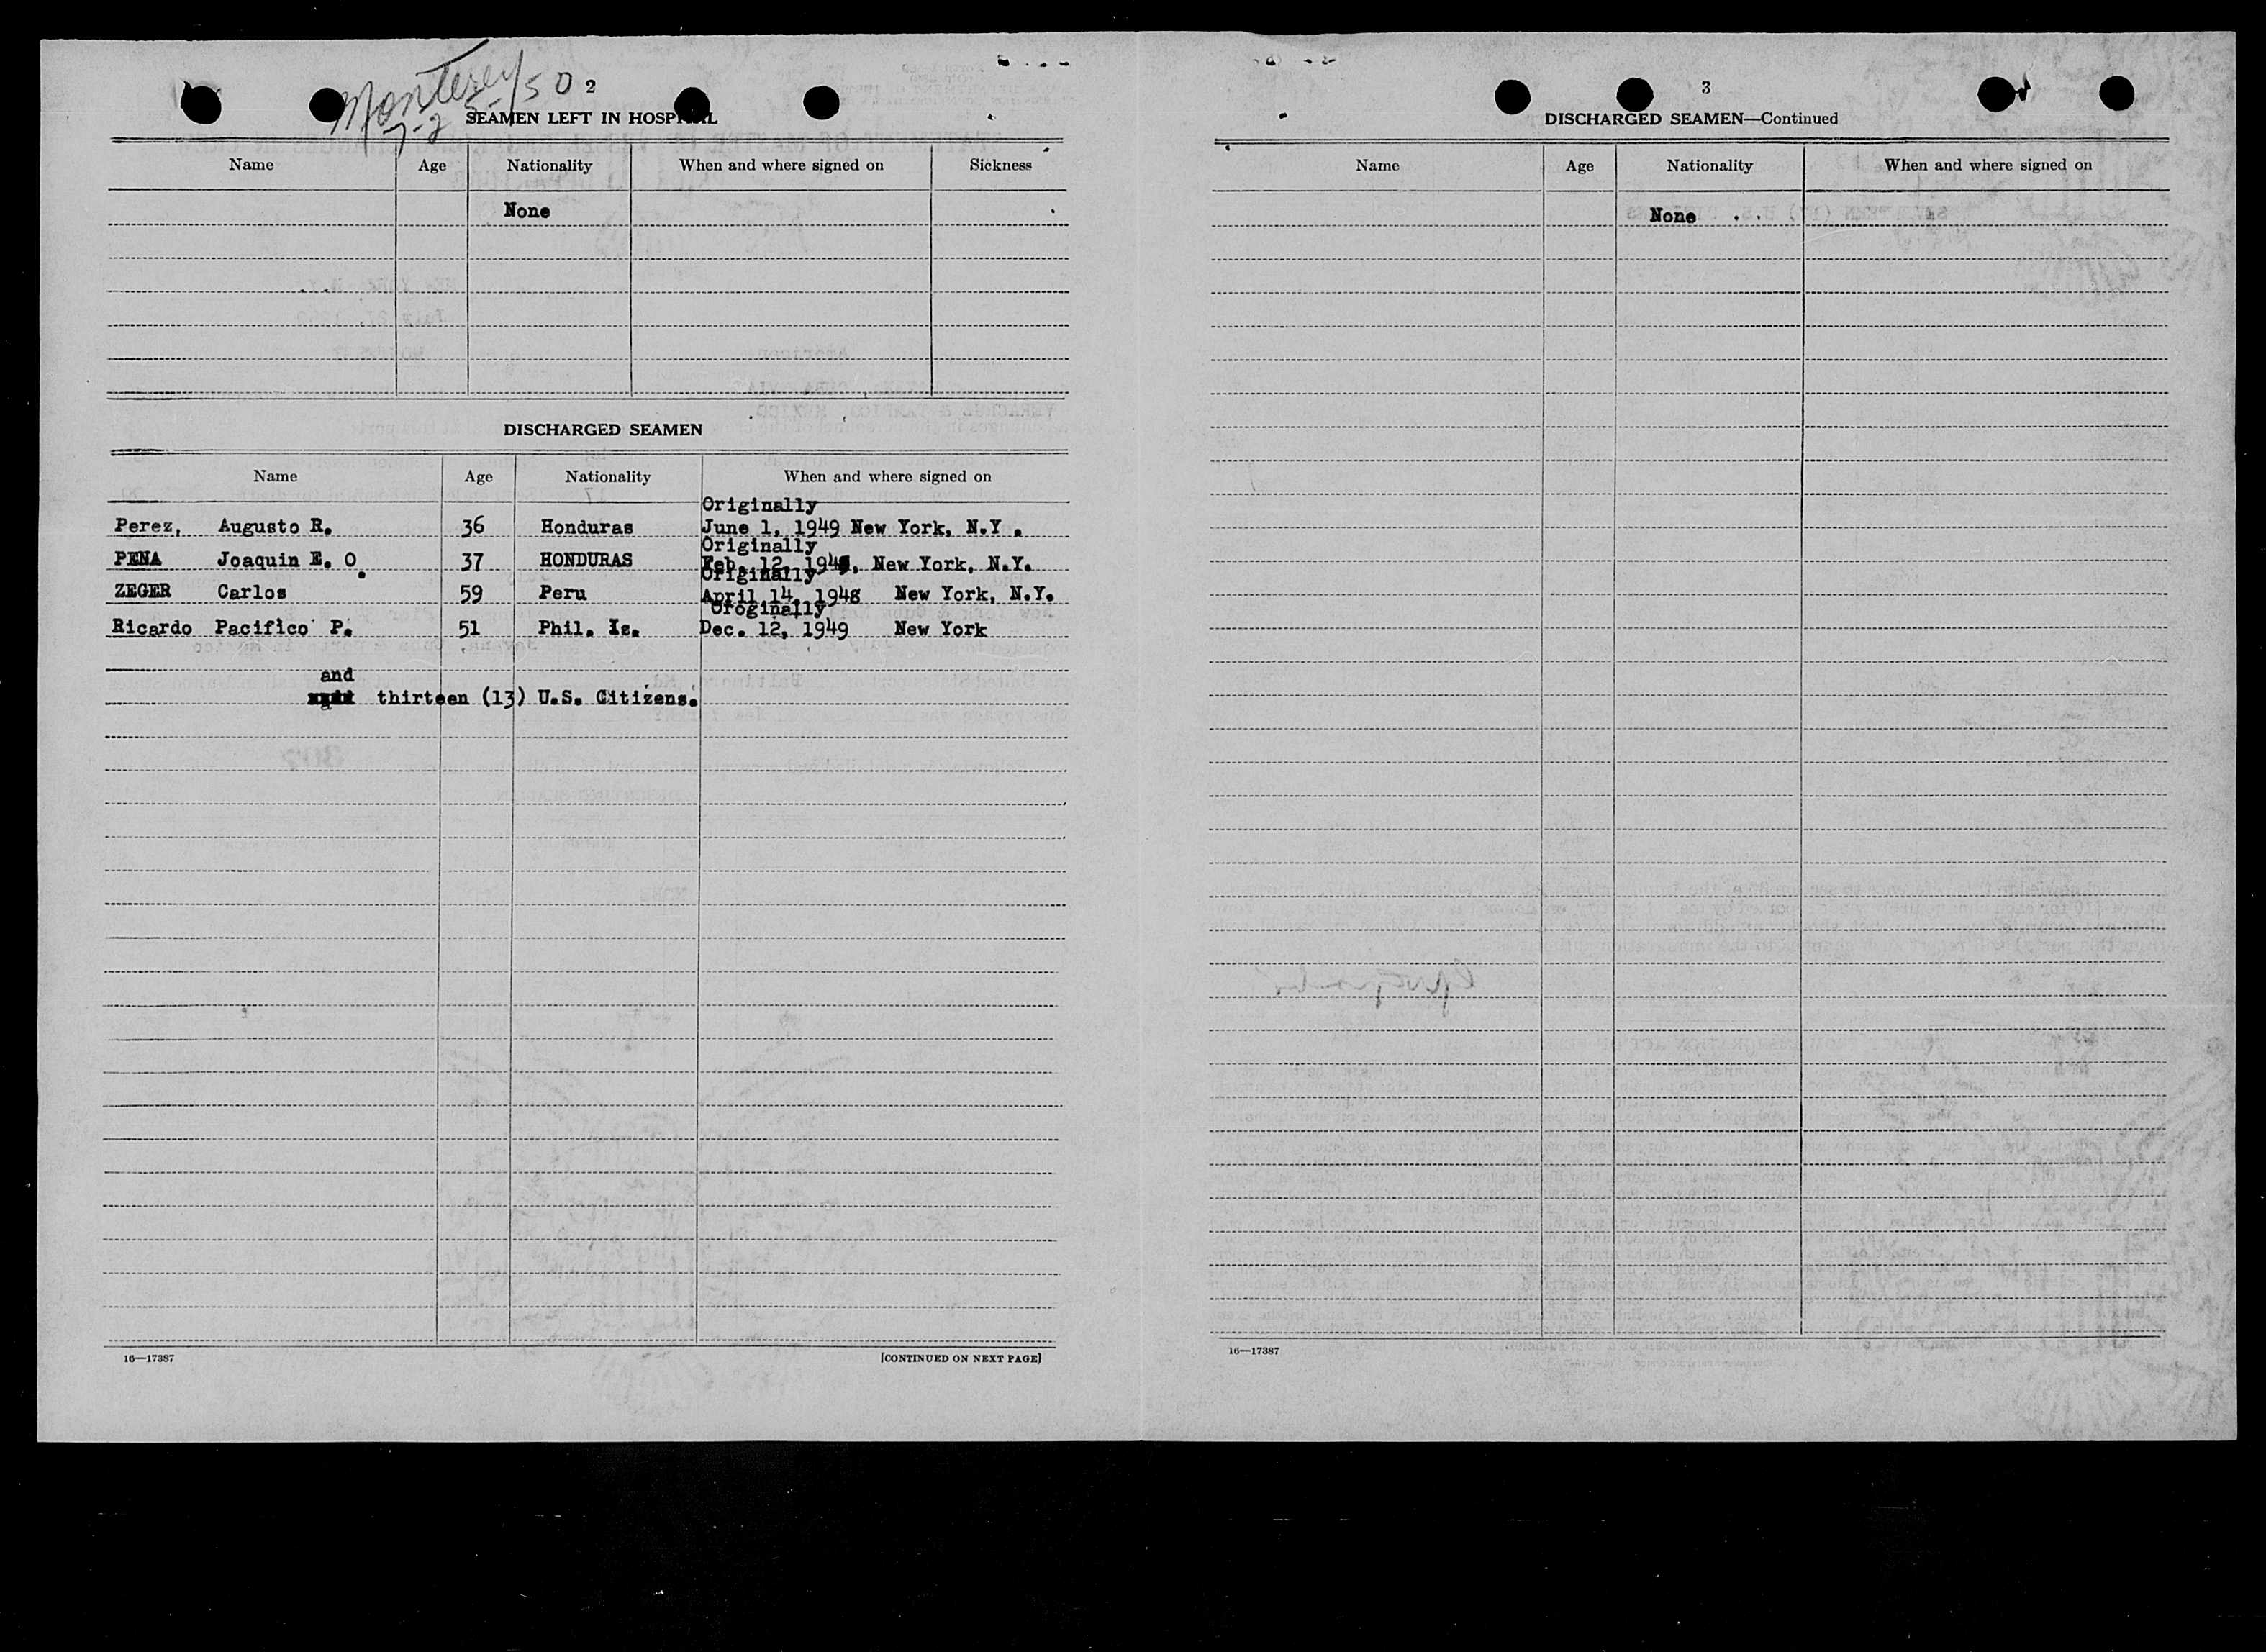 Monterey
7-25-/50
2
SEAMEN LEFT IN HOSPITAL
Name Age Nationality When and where signed on Sickness
None
DISCHARGED SEAMEN
Name Age Nationality When and where signed on
Originally
Perez, Augusto R. 36 Honduras June 1, 1949 New York, N.Y.
Originally
PENA Joaquin E. O. 37 HONDURAS Feb. 12, New York, N.Y.
Originally
ZEGER Carlos 59 Peru April 14, 1948 New York, N.Y.
Oroginally
Ricardo Pacifico P. 51 Phil. Is. Dec. 12, 1949 New York
and
thirteen (13) U.S. Citizens.
16—17387 [CONTINUED ON NEXT PAGE]
3
DISCHARGED SEAMEN—Continued
Name Age Nationality When and where signed on
None
16—17387